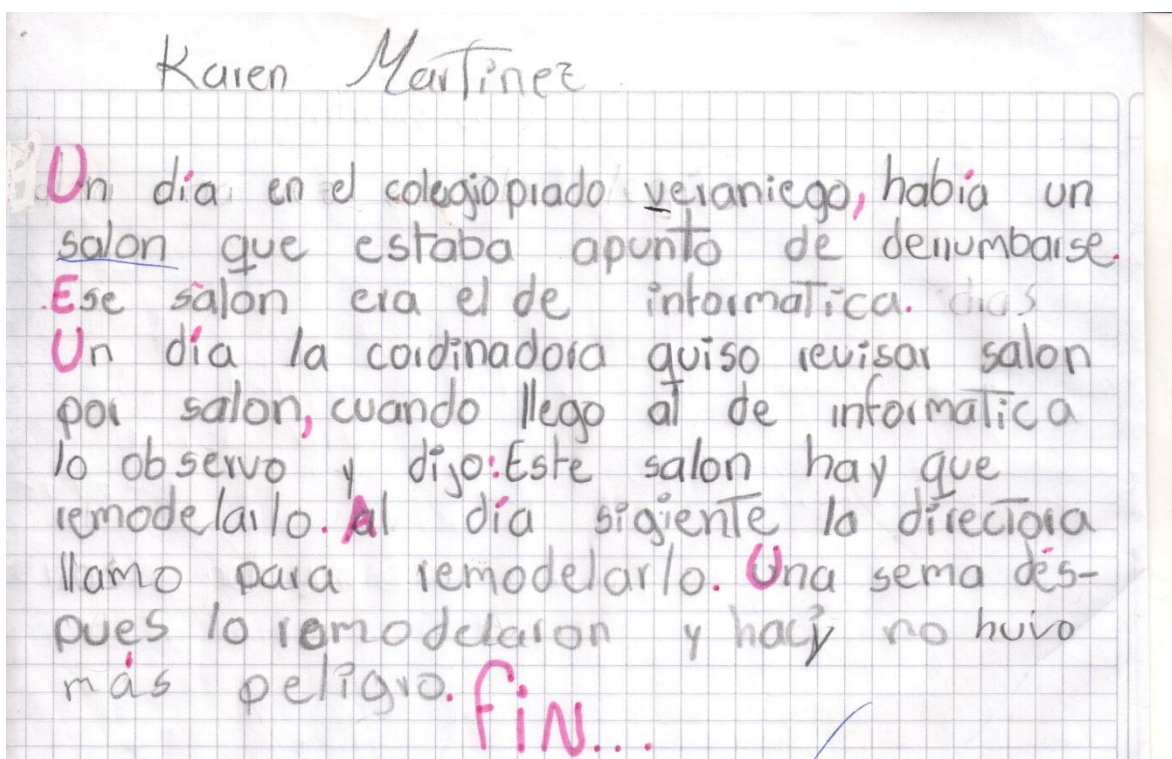 Karen Martinez
Un día en el colegio prado veraniego, había un
salon que estaba apunto de derrumbarse.
Ese salon era el de informatica. dias
Un día la cordinadora quiso revisar salon
por salon, cuando llego al de informatica
lo observo y dijo: Este salon hay que
remodelarlo. Al día sigiente la directora
llamo para remodelarlo. Una sema des-
pues lo remodelaron y hay no huvo
más peligro. Fin...